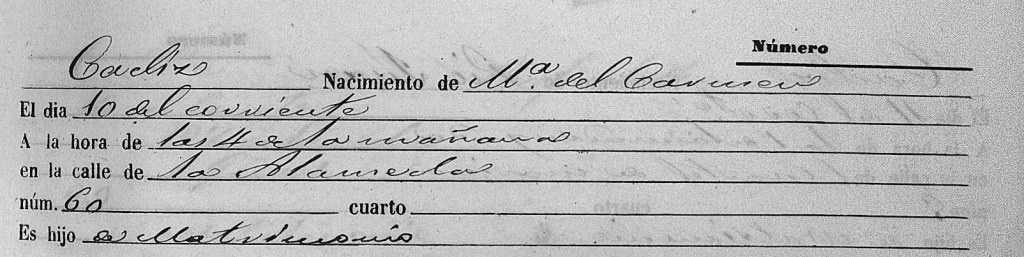 Número
Cadiz Nacimiento de Mª. del Carmen
El dia 10 del corriente
A la hora de las 4 de la mañana
en la calle de la Alameda
núm. 60 cuarto
Es hijo de Matrimonio